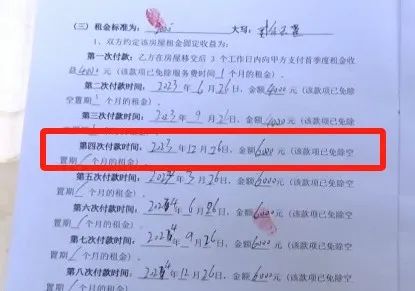 (三) 租金标准为: 大写:
1、双方约定该房屋租金固定收益为:
第一次付款: 乙方在房屋移交后 3 个工作日内向甲方支付首季度租金收
款 4000 元 (该款项已免除服务费时间 1 个月的租金)。
第二次付款时间: 2023 年 6 月 26 日, 金额 4000 元 (该款项已免除
空置期 1 个月的租金)。
第三次付款时间: 2023 年 9 月 26 日, 金额 元 (该款项已免除
空置期 / 个月的租金)。
第四次付款时间: 2023 年 12 月 26 日, 金额 6000 元 (该款项已免除空
置期 / 个月的租金)。
第五次付款时间: 年 3 月 26 日, 金额 6000 元 (该款项已免除空
置期 / 个月的租金)。
第六次付款时间: 年 6 月 26 日, 金额 6000 元 (该款项已免除空
置期 / 个月的租金)。
第七次付款时间: 年 9 月 26 日, 金额 6000 元 (该款项已免除空
置期 / 个月的租金)。
第八次付款时间: 年 12 月 26 日, 金额 6000 元 (该款项已免除空